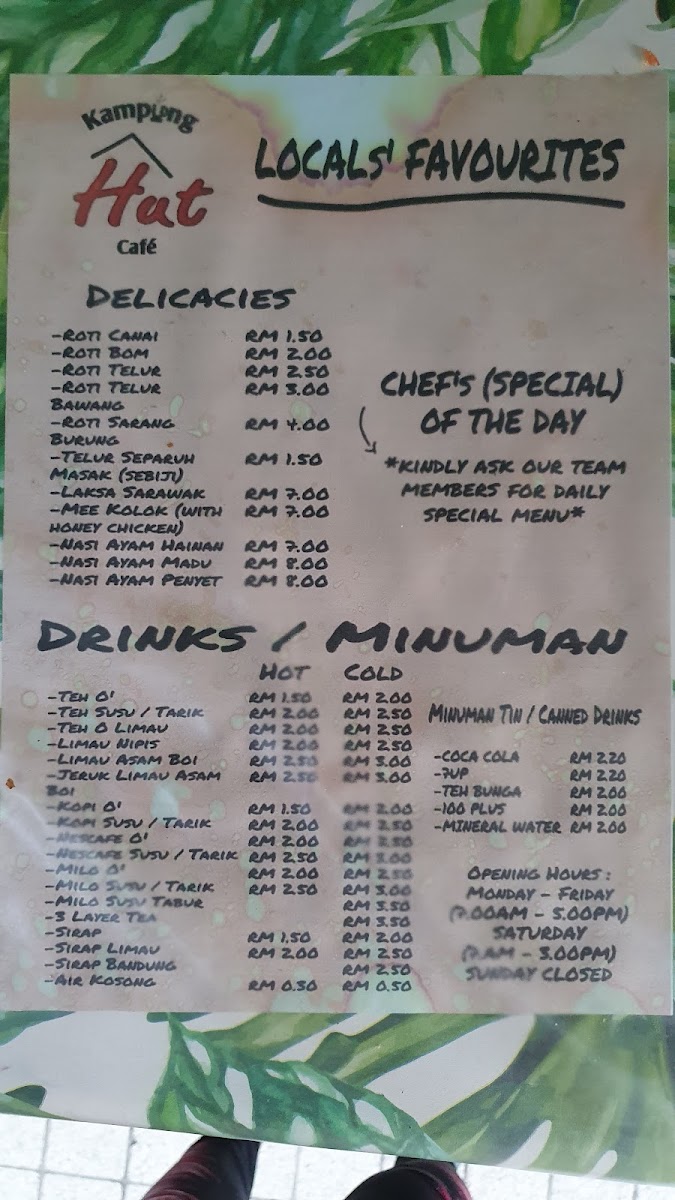 Kampung
Hut
Café
LOCALS' FAVOURITES
DELICACIES
-ROTI CANAI RM 1.50
-ROTI BOM RM 2.00
-ROTI TELUR RM 2.50
-ROTI TELUR RM 3.00
BAWANG
-ROTI SARANG RM 4.00
BURUNG
-TELUR SEPARUH RM 1.50
MASAK (SEBIJI)
-LAKSA SARAWAK RM 7.00
-MEE KOLOK (WITH RM 7.00
HONEY CHICKEN)
-NASI AYAM HAINAN RM 7.00
-NASI AYAM MADU RM 8.00
-NASI AYAM PENYET RM 8.00
CHEF'S (SPECIAL)
OF THE DAY
*KINDLY ASK OUR TEAM
MEMBERS FOR DAILY
SPECIAL MENU*
DRINKS / MINUMAN
HOT COLD
-TEH O' RM 1.50 RM 2.00
-TEH SUSU / TARIK RM 2.00 RM 2.50
-TEH O LIMAU RM 2.00 RM 2.50
-LIMAU NIPIS RM 2.00 RM 2.50
-LIMAU ASAM BOI RM 2.50 RM 3.00
-JERUK LIMAU ASAM RM 2.50 RM 3.00
BOI
-KOPI O' RM 1.50 RM 2.00
-KOPI SUSU / TARIK RM 2.00 RM 2.50
-NESCAFE O' RM 2.00 RM 2.50
-NESCAFE SUSU / TARIK RM 2.50 RM 3.00
-MILO O' RM 2.00 RM 2.50
-MILO SUSU / TARIK RM 2.50 RM 3.00
-MILO SUSU TABUR RM 3.50
-3 LAYER TEA RM 3.50
-SIRAP RM 1.50 RM 2.00
-SIRAP LIMAU RM 2.00 RM 2.50
-SIRAP BANDUNG RM 2.50
-AIR KOSONG RM 0.30 RM 0.50
MINUMAN TIN / CANNED DRINKS
-COCA COLA RM 2.20
-7UP RM 2.20
-TEH BUNGA RM 2.00
-100 PLUS RM 2.00
-MINERAL WATER RM 2.00
OPENING HOURS :
MONDAY - FRIDAY
(7.00AM - 5.00PM)
SATURDAY
(7.AM - 3.00PM)
SUNDAY CLOSED